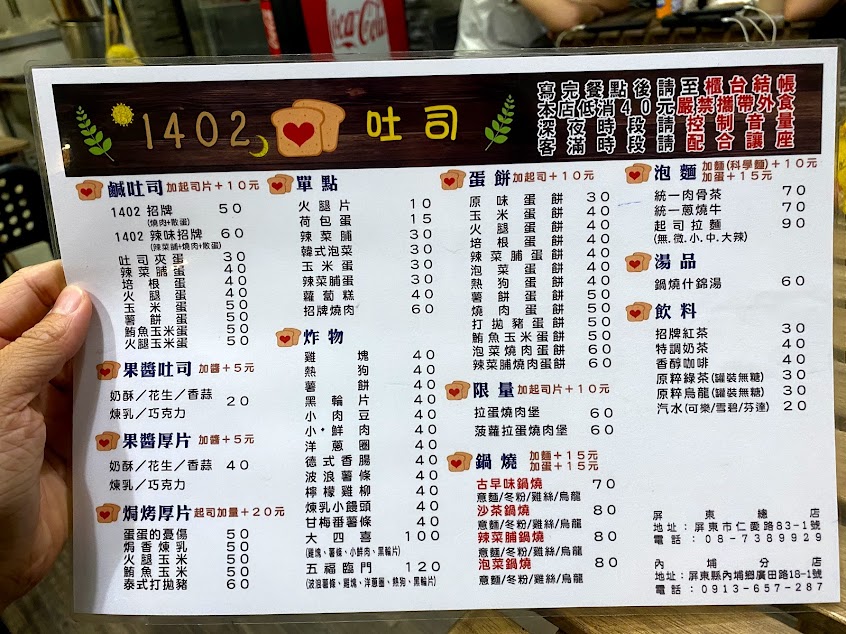 Coca-Cola
1402 吐司
寫完餐點後請至櫃台結帳
本店低消40元嚴禁攜帶外食
深夜時段請控制音量
客滿時段請配合讓座
鹹吐司 加起司片+10元
1402 招牌 50
(燒肉+散蛋)
1402 辣味招牌 60
(辣菜脯+燒肉+散蛋)
吐司夾蛋 30
辣菜脯蛋 40
培根蛋 40
火腿蛋 40
玉米蛋 50
薯餅蛋 50
鮪魚玉米蛋 50
火腿玉米蛋 50
果醬吐司 加醬+5元
奶酥/花生/香蒜
煉乳/巧克力 20
果醬厚片 加醬+5元
奶酥/花生/香蒜 40
煉乳/巧克力
焗烤厚片 起司加量+20元
蛋蛋的憂傷 50
焗香煉乳 50
火腿玉米 50
鮪魚玉米 50
泰式打拋豬 60
單點
火腿片 10
荷包蛋 15
辣菜脯 30
韓式泡菜 30
玉米蛋 30
辣菜脯蛋 30
蘿蔔糕 40
招牌燒肉 60
炸物
雞塊 40
熱狗 40
薯餅 40
黑輪片 40
小肉豆 40
小・鮮肉 40
洋蔥圈 40
德式香腸 40
波浪薯條 40
檸檬雞柳 40
煉乳小饅頭 40
甘梅番薯條 40
大四喜 100
(雞塊、薯條、小鮮肉、黑輪片)
五福臨門 120
(波浪薯條、雞塊、洋蔥圈、熱狗、黑輪片)
蛋餅 加起司+10元
原味蛋餅 30
玉米蛋餅 40
火腿蛋餅 40
培根蛋餅 40
辣菜脯蛋餅 40
泡菜蛋餅 40
熱狗蛋餅 40
薯餅蛋餅 50
燒肉蛋餅 50
打拋豬蛋餅 50
鮪魚玉米蛋餅 50
泡菜燒肉蛋餅 60
辣菜脯燒肉蛋餅 60
限量 加起司片+10元
拉蛋燒肉堡 60
菠蘿拉蛋燒肉堡 60
鍋燒 加麵+15元
加蛋+15元
古早味鍋燒 70
意麵/冬粉/雞絲/烏龍
沙茶鍋燒 80
意麵/冬粉/雞絲/烏龍
辣菜脯鍋燒 80
意麵/冬粉/雞絲/烏龍
泡菜鍋燒 80
意麵/冬粉/雞絲/烏龍
泡麵 加麵(科學麵)+10元
加蛋+15元
統一肉骨茶 70
統一蔥燒牛 70
起司拉麵 90
(無.微.小.中.大辣)
湯品
鍋燒什錦湯 60
飲料
招牌紅茶 30
特調奶茶 40
香醇咖啡 40
原粹綠茶(罐裝無糖) 30
原粹烏龍(罐裝無糖) 30
汽水(可樂/雪碧/芬達) 20
屏東總店
地址:屏東市仁愛路83-1號
電話:08-7389929
內埔分店
地址:屏東縣內埔鄉廣田路18-1號
電話:0913-657-287